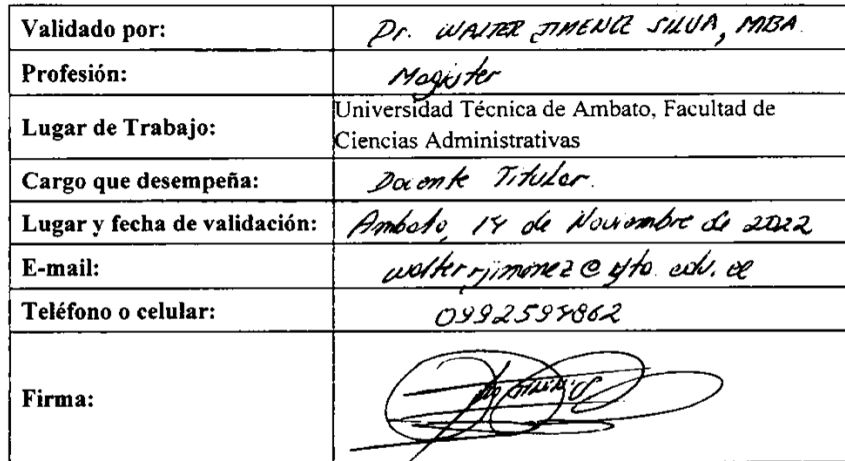 Validado por: Dr. WALTER JIMENEZ SILVA, MBA.
Profesión: Magister
Lugar de Trabajo: Universidad Técnica de Ambato, Facultad de
Ciencias Administrativas
Cargo que desempeña: Docente Titular.
Lugar y fecha de validación: Ambato, 14 de Noviembre de 2022
E-mail: walterrjimenez@uta.edu.ec
Teléfono o celular:
Firma: